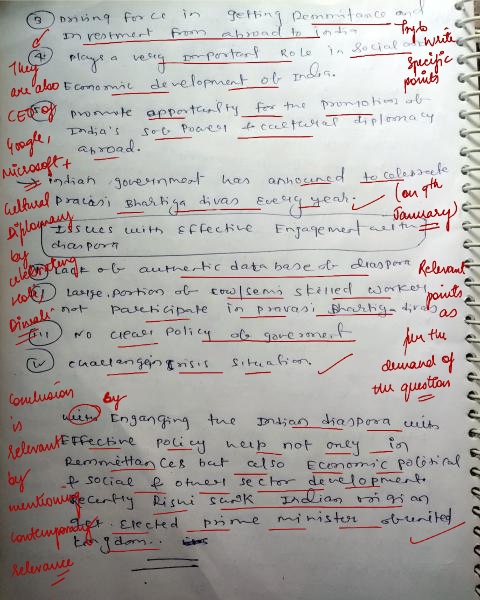 ③ Driving force in getting Remmitance and
Investment from abroad to India
④ Plays a very important Role in Social
Economic development of India.
⑤ promote opportunity for the promotion of
India's soft Power & cultural diplomacy
abroad.
→ indian government has announced to celebrate
Pravasi Bhartiya divas Every year.
Issues with Effective Engagement with
diaspora
Lack of authentic database of diaspora
Large portion of low/semi skilled worker
not participate in pravasi Bhartiya divas
iii) No clear Policy of goverment
iv challenging crisis situation.
with Enganging the Indian diaspora with
Effective policy help not only in
Remmittances but also Economic political
& social & other sector development.
Recently Rishi Sunk Indian origian
get Elected prime minister of united
Kingdom.
They
are also
CEO of
Google,
Microsoft +
Cultural
Diplomacy
by
celebrating
Holi,
Diwali
Try to
write
specific
points
(on 9th
January)
Relevant
points
as
per the
demand of
the question
by
Conclusion
is
relevant
by
mentioning
contemporary
relevance